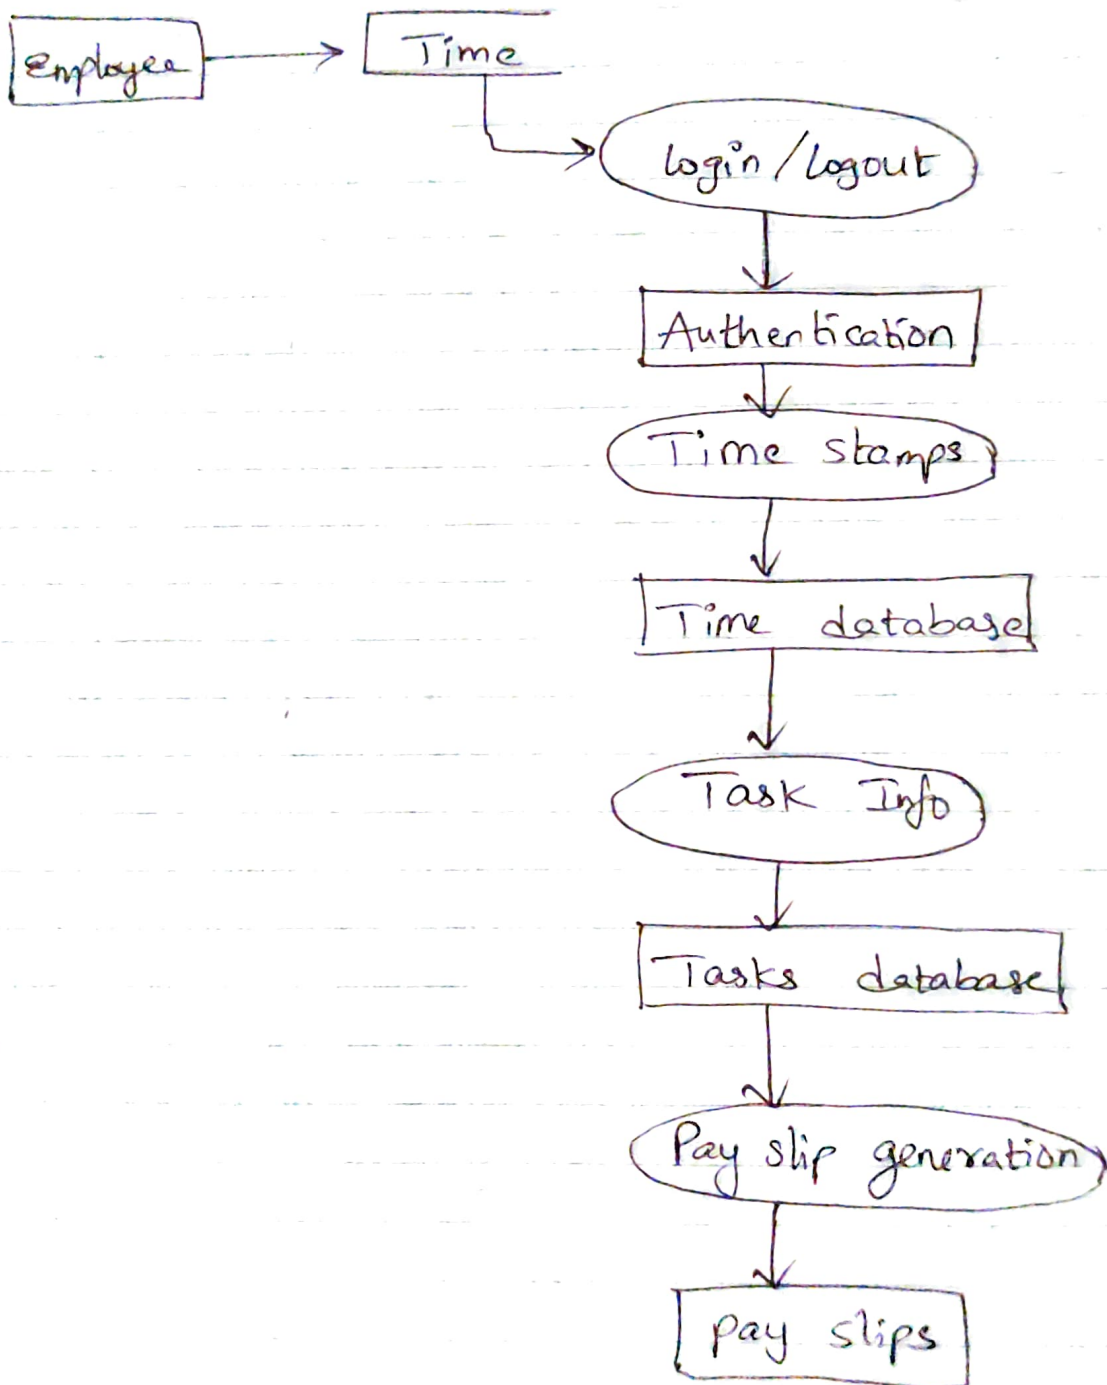 Employee
Time
Login/Logout
Authentication
Time stamps
Time database
Task Info
Tasks database
Pay slip generation
pay slips